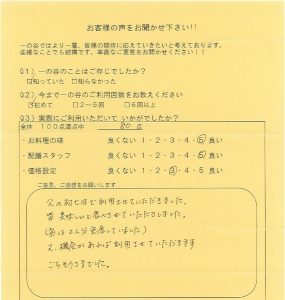 お客様の声をお聞かせ下さい!!
一の谷ではより一層、皆様の期待に応えていきたいと考えております。
些細なことでも結構です。率直なご意見をお聞かせください!!
Q1）一の谷のことはご存じでしたか?
☑知っていた □知らなかった
Q2）今まで一の谷のご利用回数をお教えください
☑初めて □2～5回 □6回以上
Q3）実際にご利用いただいて いかがでしたか?
全体 100点満点中 80 点
・お料理の味 良くない 1・2・3・4・5 良い
・配膳スタッフ 良くない 1・2・3・4・5 良い
・価格設定 良くない 1・2・3・4・5 良い
ご意見、ご感想をお願いします
父の初七日で利用させていただきました。
皆 美味しいと食べさせていただきました。
2人分完食していました)
又、機会があれば利用させていただきます
ごちそうさまでした。